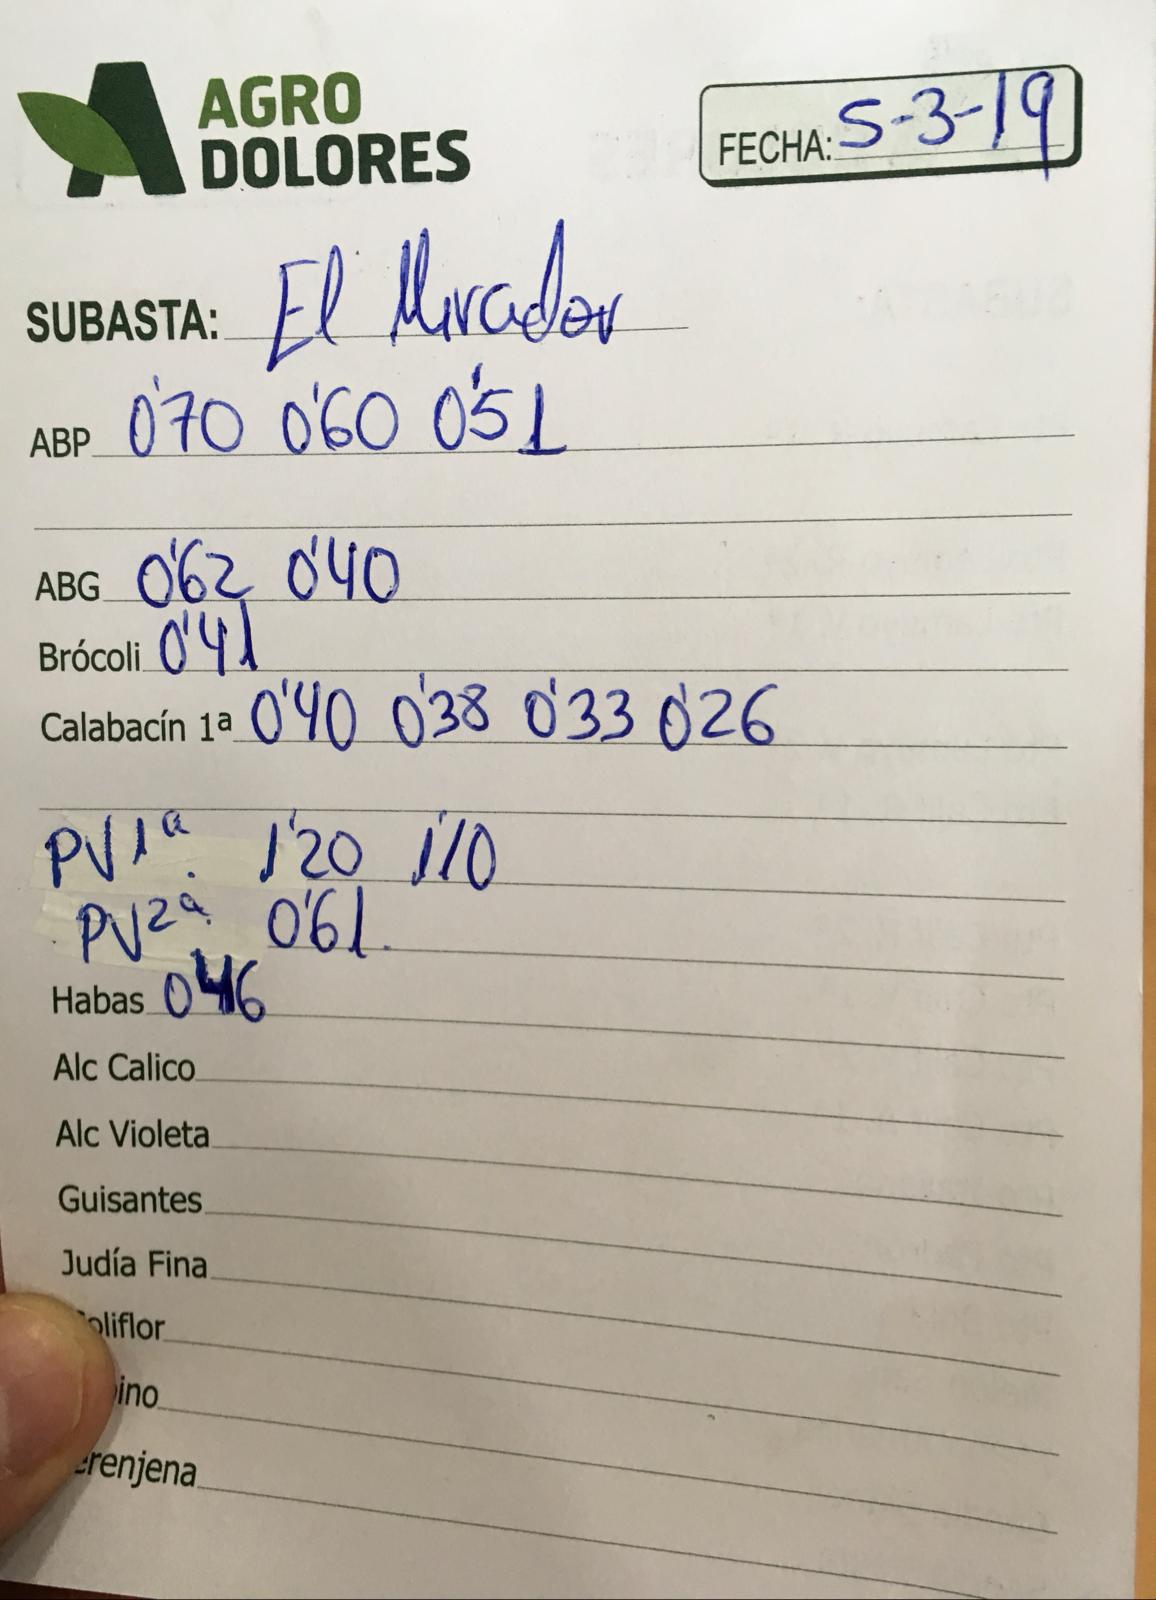 AGRO
DOLORES
FECHA: 5-3-19
SUBASTA: El Mirador
ABP 0'70 0'60 0'51
ABG 0'62 0'40
Brócoli 0'41
Calabacín 1ª 0'40 0'38 0'33 0'26
PV1ª. 1'20 1'10
PV2ª. 0'61.
Habas 0'46
Alc Calico
Alc Violeta
Guisantes
Judía Fina
oliflor
ino
erenjena